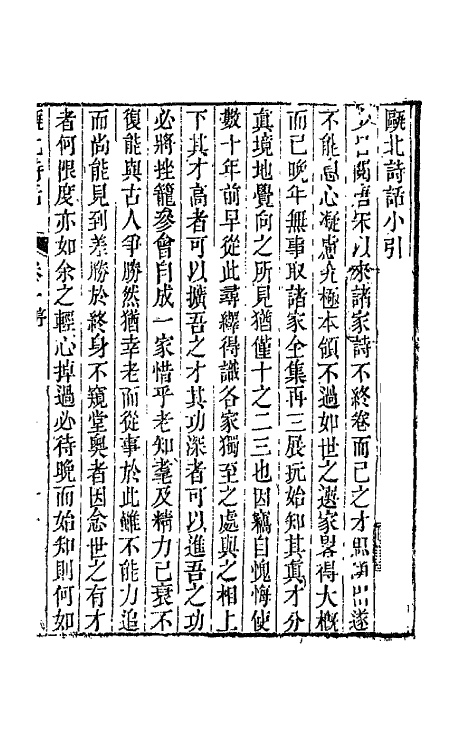 甌北詩話小引
少日閱唐宋以來諸家詩不終卷而己之才思湧出遂
不能息心凝慮究極本領不過如世之選家畧得大概
而已晚年無事取諸家全集再三展玩始知其真才分
真境地覺向之所見猶僅十之二三也因竊自愧悔使
數十年前早從此尋繹得識各家獨至之處與之相上
下其才高者可以擴吾之才其功深者可以進吾之功
必將挫籠參會自成一家惜乎老知耄及精力已衰不
復能與古人爭勝然猶幸老而從事於此雖不能力追
而尚能見到差勝於終身不窺堂奥者因念世之有才
者何限度亦如余之輕心掉過必待晚而始知則何如
甌北詩話